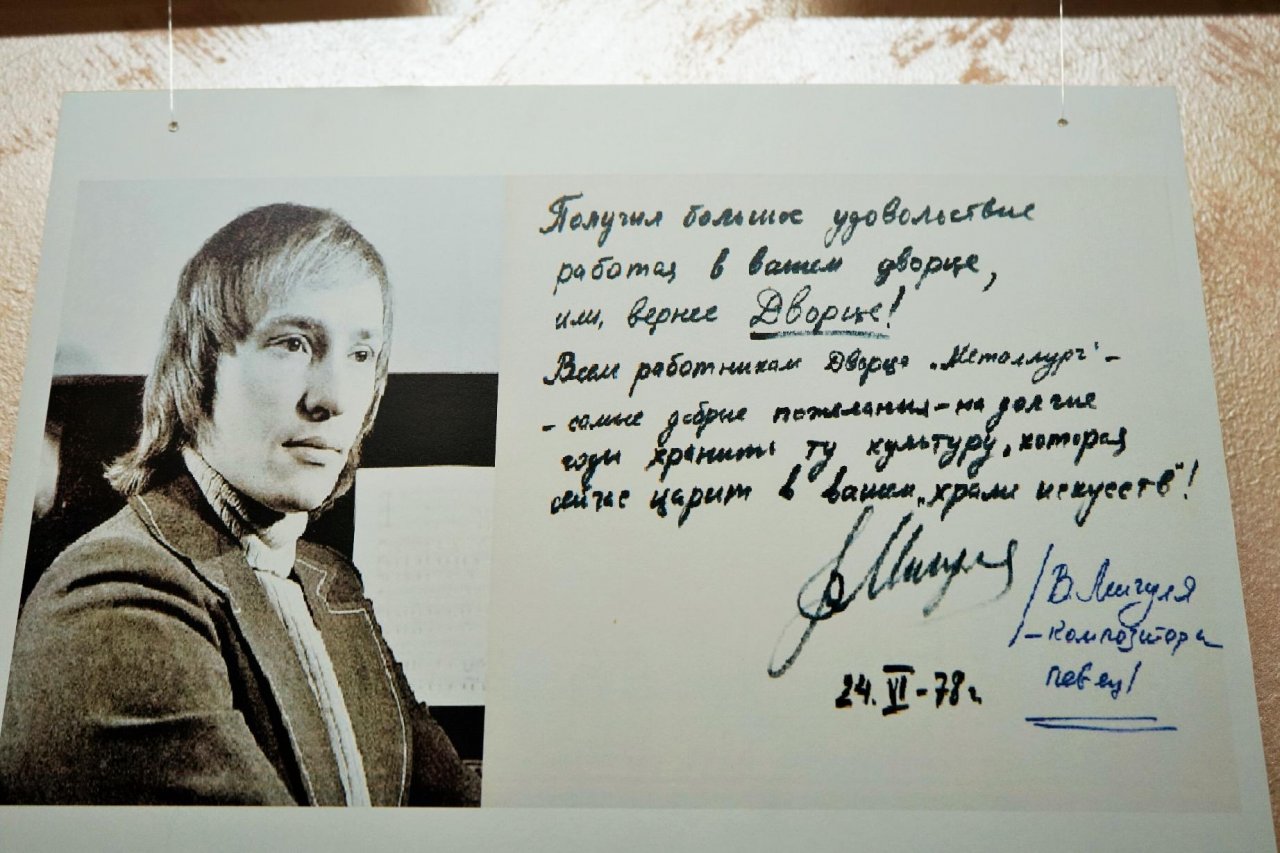 Получил большое удовольствие
работая в вашем дворце,
или, вернее Дворце!
Всем работникам Дворца „Металлург" –
– самые добрые пожелания – на долгие
годы хранить ту культуру, которая
сейчас царит в вашем „храме искусств"!
Мигуля
24. VI – 78 г.
/В. Мигуля
– композитор и
певец/